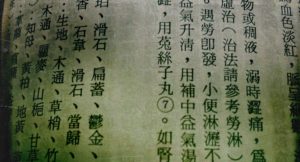 血色淡紅，腰
物或稠液，溺時澀痛，為
虛治（治法請參考勞淋，
。遇勞卽發，小便淋瀝不
益氣升清，用補中益氣湯
，用兔絲子丸⑦。如腎
珀、滑石、扁蓄、鬱金、
香、石韋、滑石、當歸、
：生地、木通、草梢、竹
木通、瞿麥、山梔、甘草
）知母、黃柏、地黃、